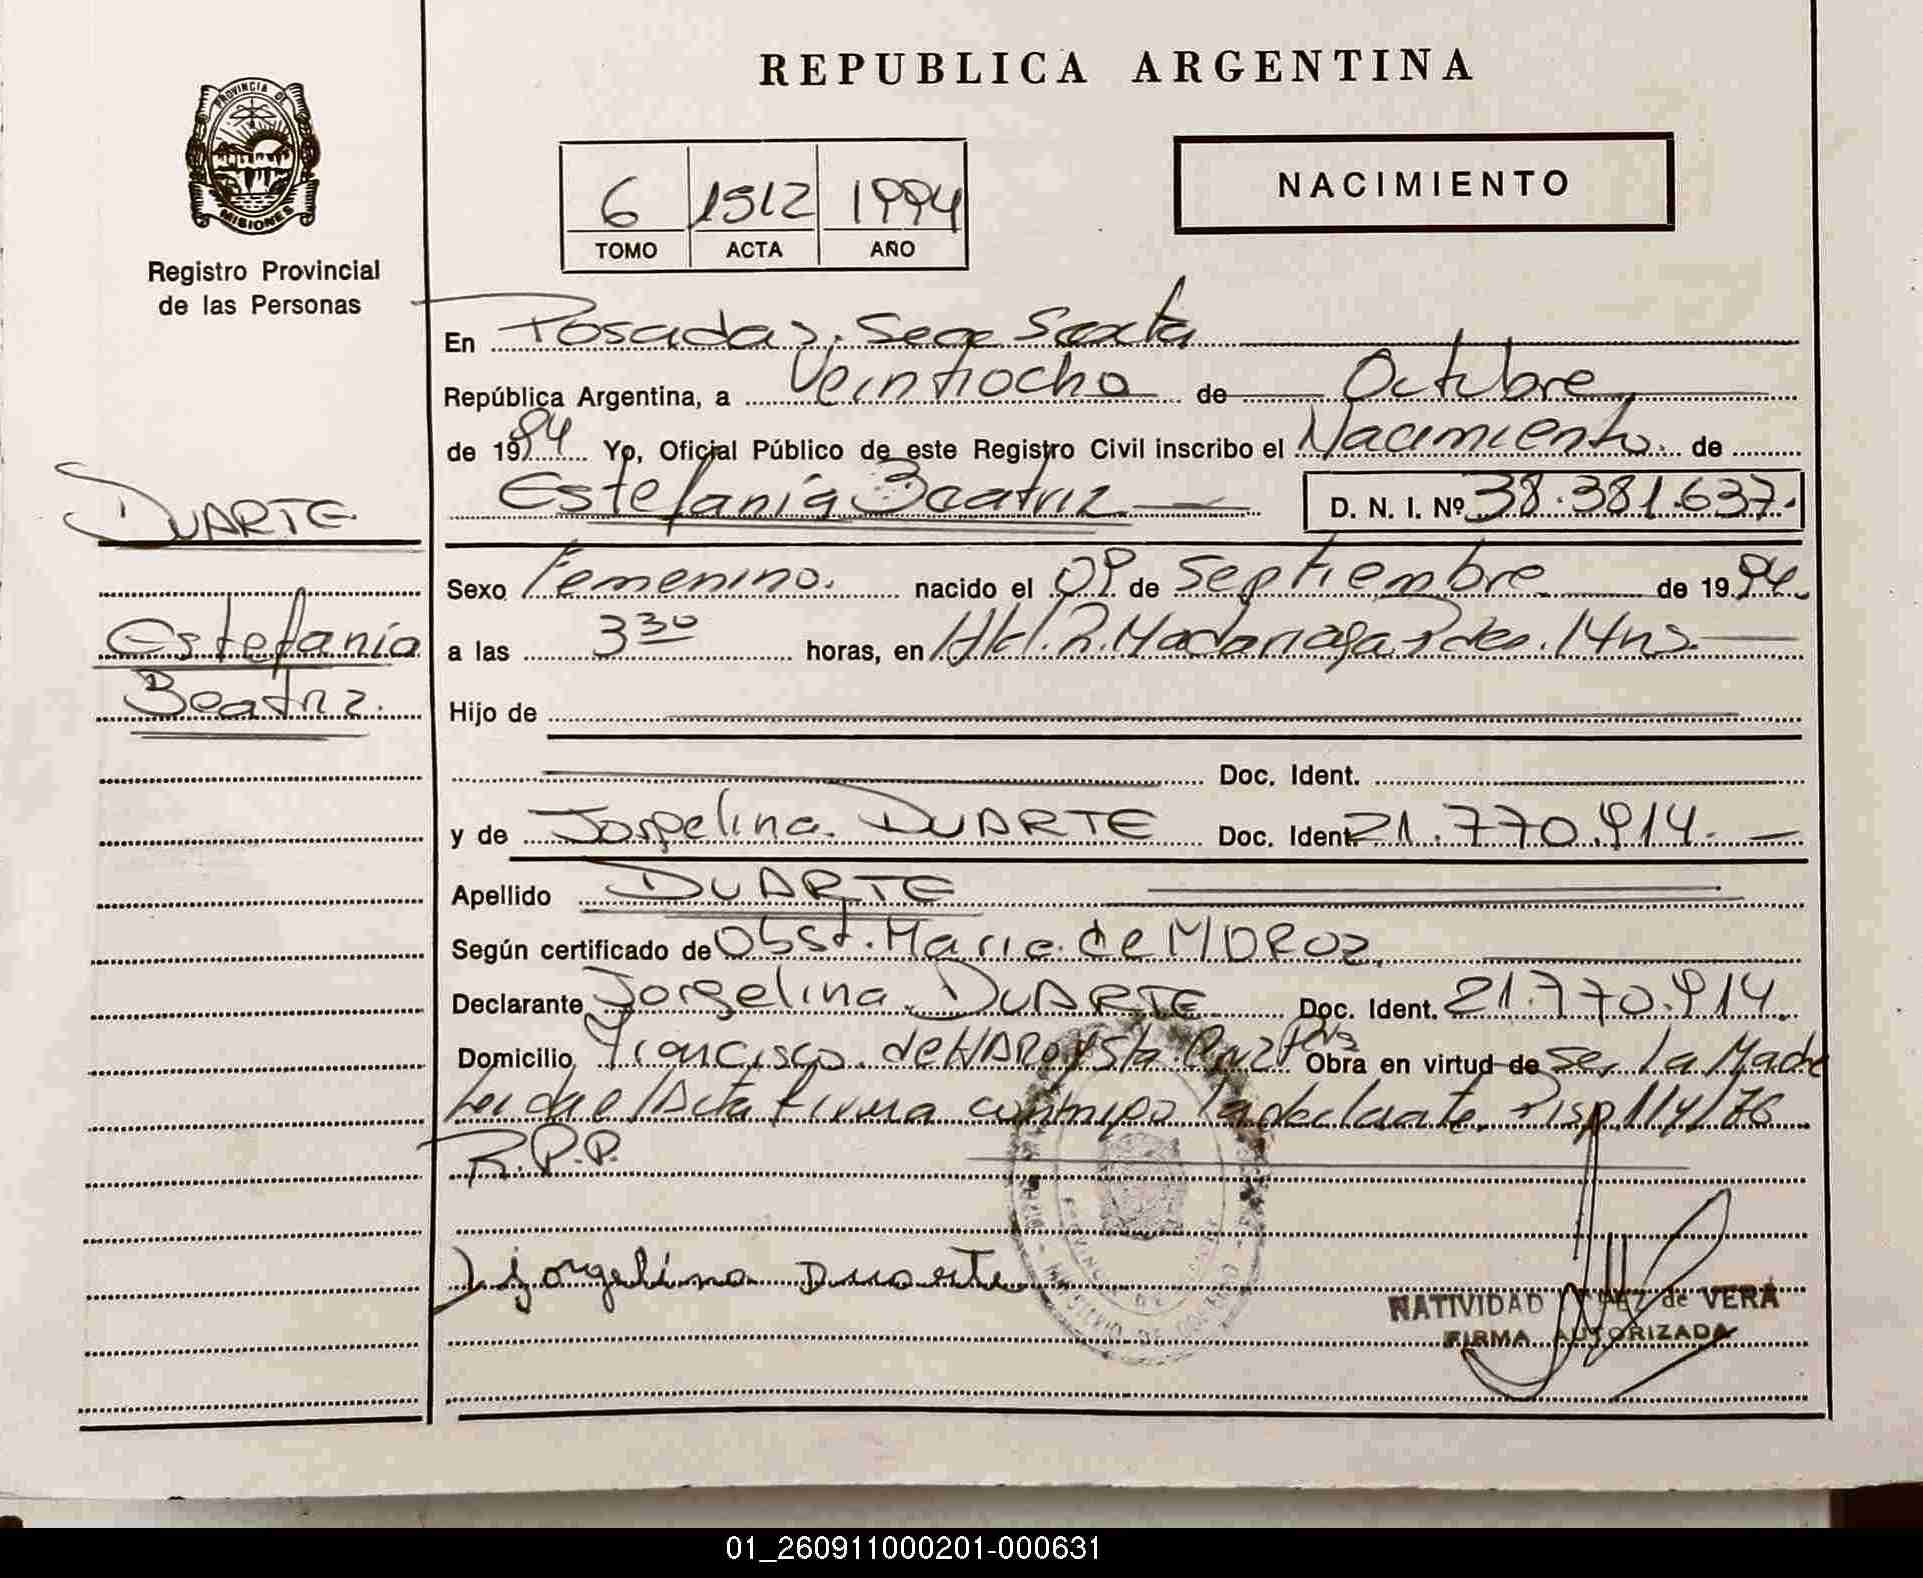 REPUBLICA ARGENTINA
PROVINCIA DE
MISIONES
Registro Provincial
de las Personas
6 1512 1994
TOMO ACTA AÑO
NACIMIENTO
En Posadas. Secc Sexta
República Argentina, a Veintiocho de Octubre
de 1994 Yo, Oficial Público de este Registro Civil inscribo el Nacimiento. de
Estefanía Beatriz D. N. I. Nº 38.381.637.
DUARTE
Estefanía
Beatriz.
Sexo Femenino. nacido el 09 de Septiembre de 1994.
a las 3 30 horas, en Htal. R. Madariaga. Pdas. 14 ns.
Hijo de
Doc. Ident.
y de Jorgelina. DUARTE Doc. Ident. 21.770.914.
Apellido DUARTE
Según certificado de Obst. Maria. de MOROZ.
Declarante Jorgelina. DUARTE Doc. Ident. 21.770.914.
Domicilio Francisco. de HARO y Sta. Cruz Pdas Obra en virtud de Ser la Madre
Leida el Acta firma conmigo la declarante. Disp. 114/76
R.P.P.
Jorgelina Duarte
NATIVIDAD de VERA
FIRMA AUTORIZADA
01_260911000201-000631